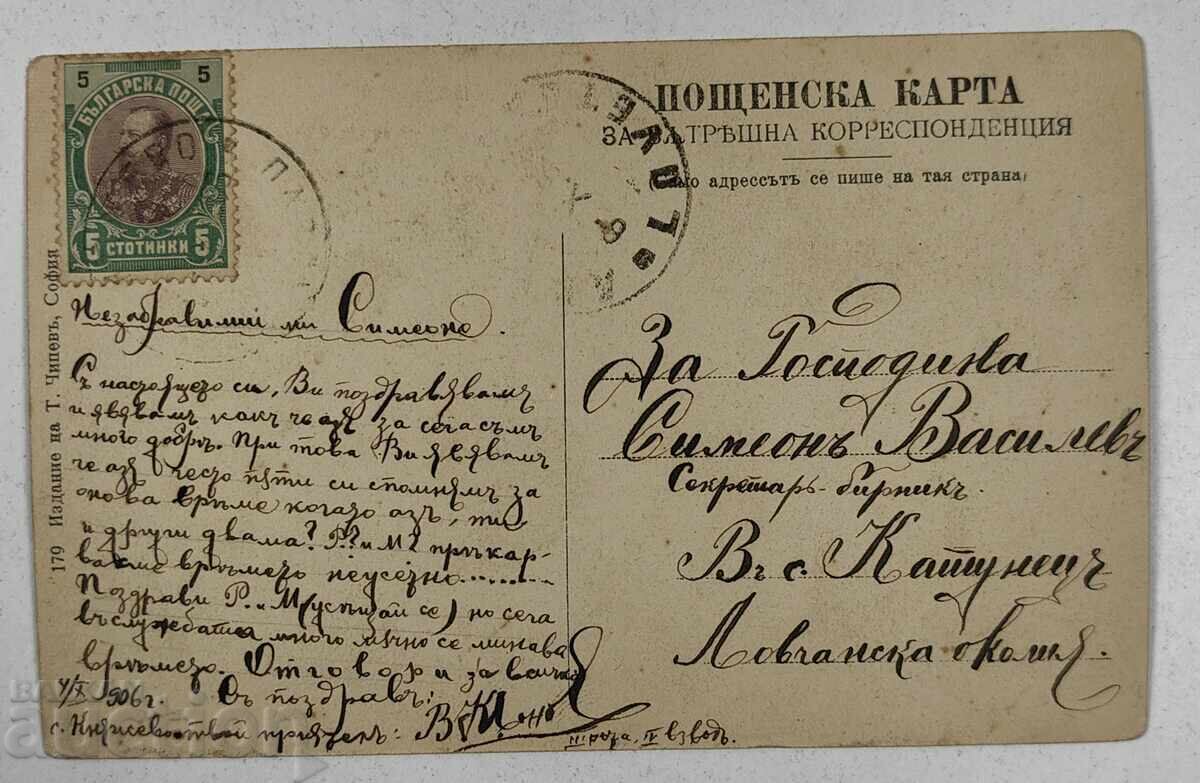 5 5
БЪЛГАРСКА ПОЩА
5 СТОТИНКИ 5
ПОЩЕНСКА КАРТА
ЗА ВЪТРѢШНА КОРРЕСПОНДЕНЦИЯ
(Само адрессътъ се пише на тая страна)
179 Издание на Т. Чипевъ, София
Незабравимий ми Симеоне.
Съ настоящето си, Ви поздравявамъ
и явявамъ какъ че азъ за сега съмъ
много добрѣ. При това Ви явявамъ
че азъ често пѫти си спомнямъ за
онова врѣме когато азъ, ти
и други двама? Р? и М? прѣкар-
вахме врѣмето неусетно.........
Поздрави Р. и М (услушай се) но сега
въ службата много мѫчно се минава
врѣмето. Отговори за всичко
Съ поздравъ:
4/X 906 г.
с. Княжево твой приятель: В.
III рота, II взводъ.
За Господина
Симеонъ Василевъ
Секретарь-бирникъ.
Въ с. Катунецъ
Ловчанска околия.